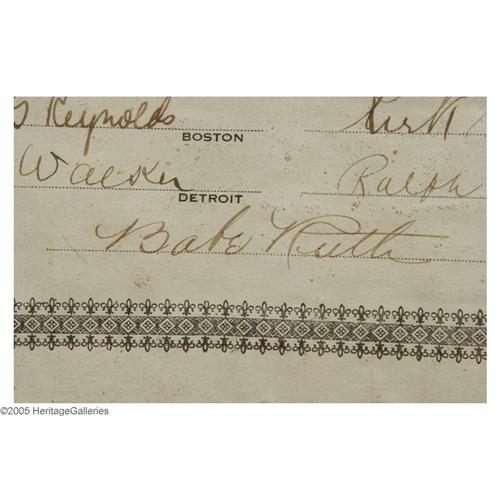 Reynolds
BOSTON
Walker Ralph
DETROIT
Babe Ruth
©2005 HeritageGalleries